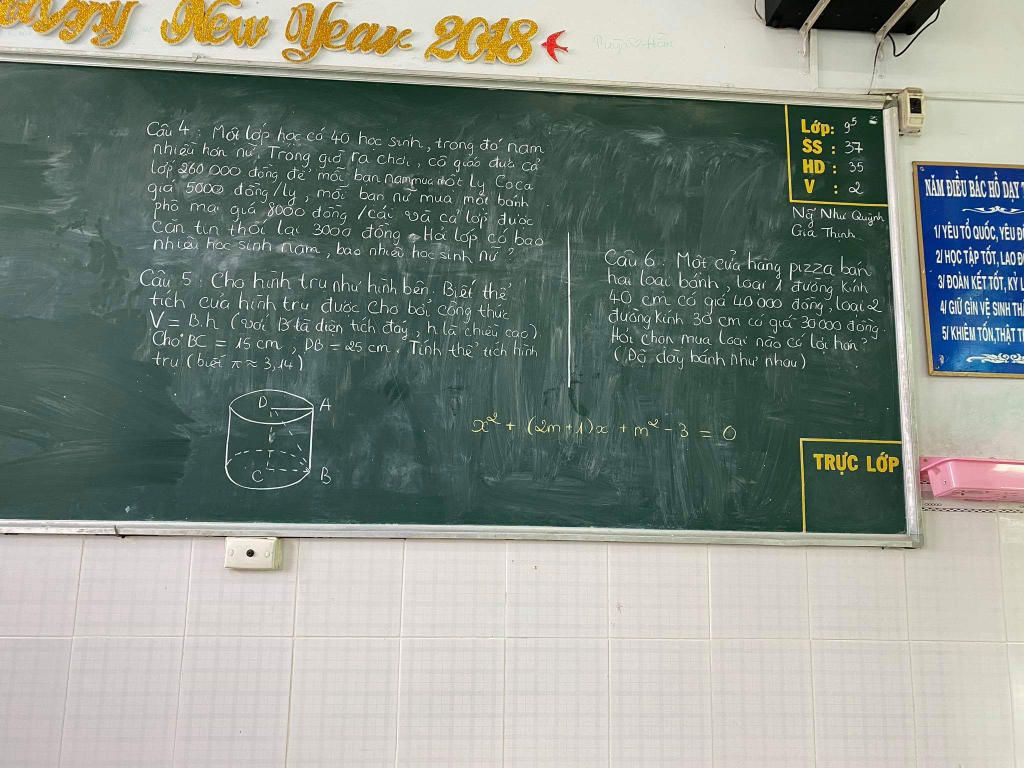 Happy New Year 2018
Câu 4 : Một lớp học có 40 học sinh, trong đó nam
nhiều hơn nữ. Trong giờ ra chơi, cô giáo đưa cả
lớp 260 000 đồng để mỗi bạn nam mua một Ly Coca
giá 5000 đồng/ly, mỗi bạn nữ mua một bánh
phô mai giá 8000 đồng/cái và cả lớp được
căn tin thối lại 3000 đồng. Hỏi lớp có bao
nhiêu học sinh nam, bao nhiêu học sinh nữ ?
Câu 5 : Cho hình trụ như hình bên. Biết thể
tích của hình trụ được cho bởi công thức
V = B.h (với B là diện tích đáy, h là chiều cao)
Cho BC = 15 cm, DB = 25 cm. Tính thể tích hình
trụ (biết π ≈ 3,14)
D A
C B
Câu 6 : Một cửa hàng pizza bán
hai loại bánh, loại 1 đường kính
40 cm có giá 40 000 đồng, loại 2
đường kính 30 cm có giá 30 000 đồng.
Hỏi chọn mua loại nào có lợi hơn?
(Độ dày bánh như nhau)
x² + (2m+1)x + m² - 3 = 0
Lớp: 9⁵
SS : 37
HD : 35
V : 2
Ng Như Quỳnh
Gia Thịnh
TRỰC LỚP
NĂM ĐIỀU BÁC HỒ DẠY
1/ YÊU TỔ QUỐC, YÊU
2/ HỌC TẬP TỐT, LAO
3/ ĐOÀN KẾT TỐT, KỶ
4/ GIỮ GÌN VỆ SINH
5/ KHIÊM TỐN, THẬT